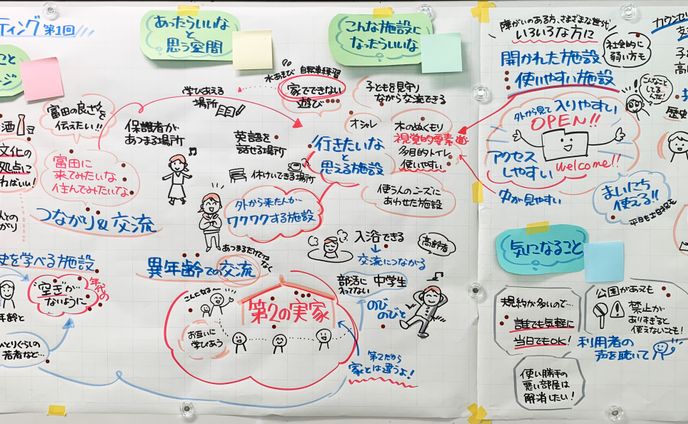 ティング 第1回
こと
ージ
富田の良さを
伝えたい!!
酒
文化の
拠点に
ればいい!
富田に
来てみたいな
住んでみたいな
つながり&交流
史を学べる施設
"空き"が
ないように
年齢と
ひとりぐらしの
若者など…
あったらいいなと
思う空間
学びあえる
場所
水あそび 自転車練習
家でできない
遊び
保護者が
あつまる場所
英語を
話せる場所
休けいできる場所
外から来た人が
ワクワクする施設
あつまるだけじゃなく
異年齢での交流
こんにちは
第2の実家
お互いに
学びあう
第2だから
家とは違うよ!
こんな施設に
なったらいいな
子どもを見守り
ながら交流できる
オシャレ
木のぬくもり
視覚的要素
多目的トイレ
使いやすい
行きたいな
と
思える施設
使う人のニーズに
あわせた施設
入浴できる
高齢者
交流につながる
部活に
入ってない
中学生
のび
のびと
障がいのある方、さまざまな世代
いろいろな方に
社会的に
弱い方も
開かれた施設
使いやすい施設
こんなこと
してるんだ
外から見て入りやすい
OPEN!!
アクセス
しやすい
welcome!!
中が見やすい
まいにち
使える!!
平日も土日祝も
カウンセ
歴史
気になること
規約が多いので…
誰でも気軽に
当日でもOK!
使い勝手の
悪い部屋は
解消したい!
公園があっても
禁止が
ありすぎると
使えないことも!
利用者の
声を聴いて